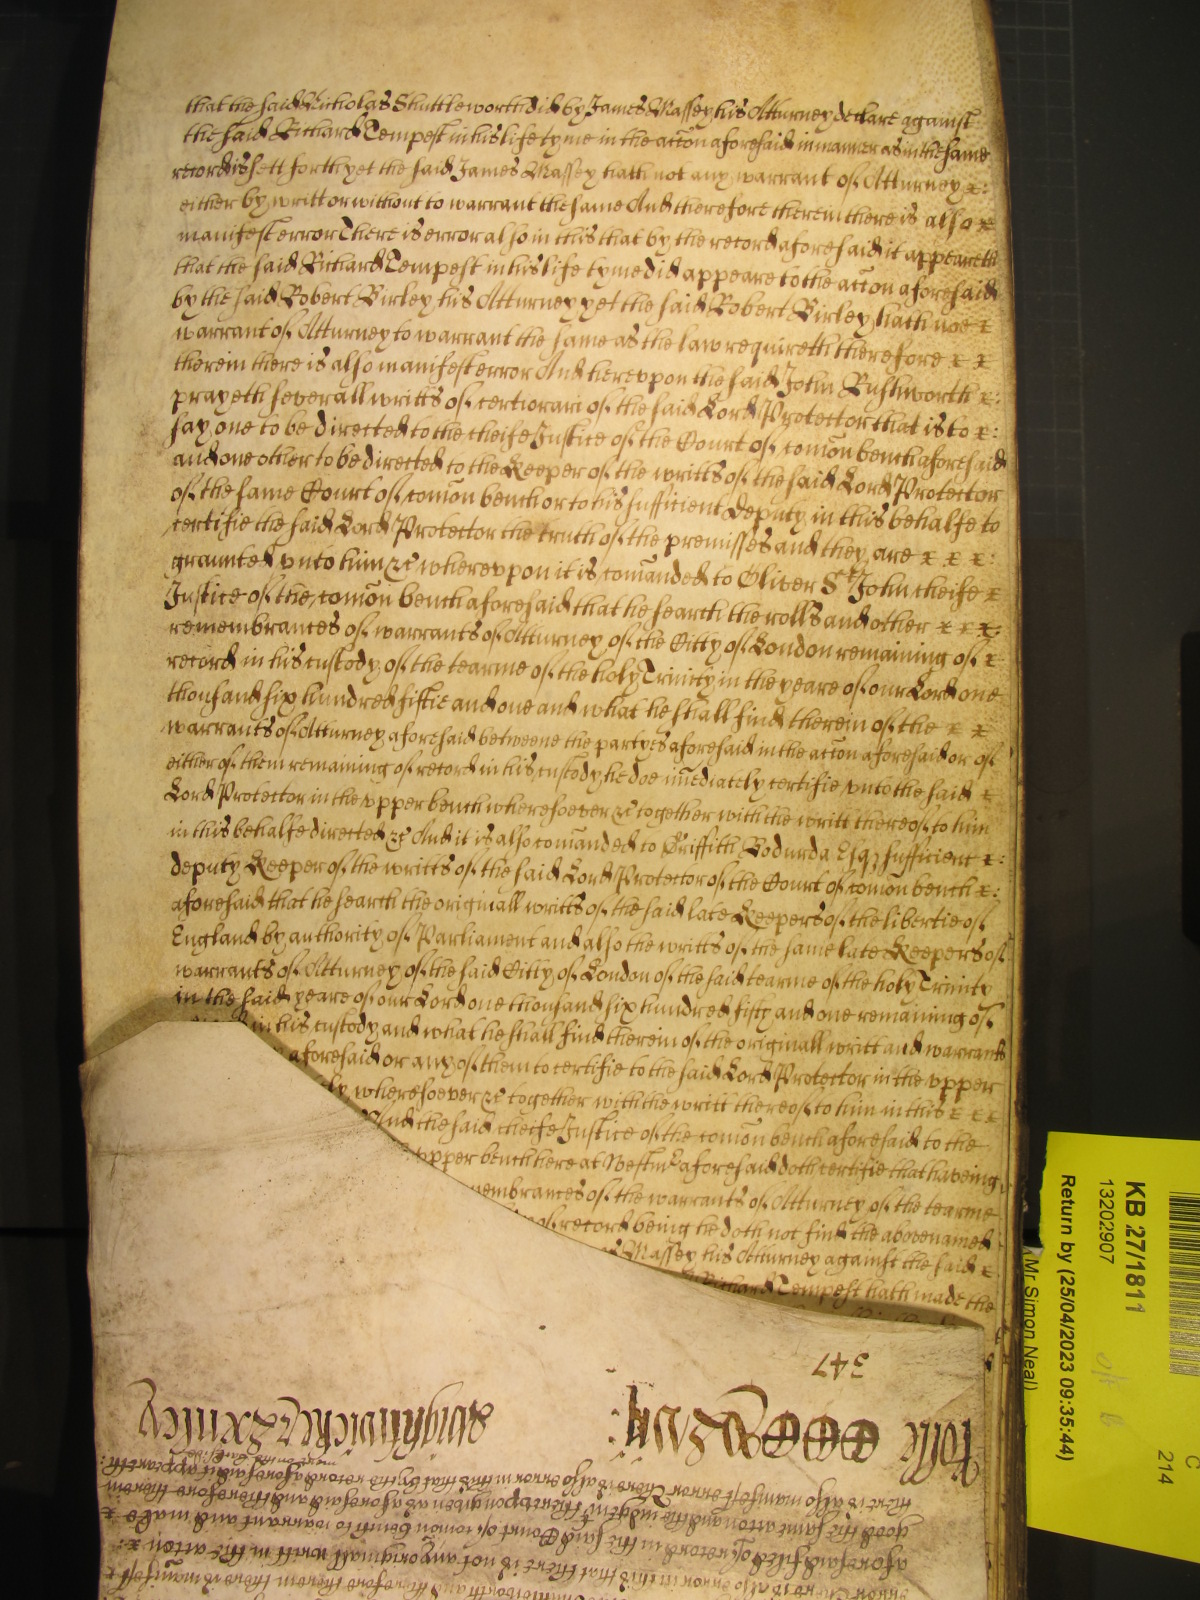 that the said Nicholas Shuttleworth did by James Massey his Atturney declare against
the said Richard Tempest in his life tyme in the acc̄on aforesaid in manner as in the same
record is sett forth yet the said James Massey hath not any warrant of Atturney x:
either by writt or without to warrant the same And therefore therein there is also x
manifest error There is error also in this that by the record aforesaid it appeareth
that the said Richard Tempest in his life tyme did appeare to the acc̄on aforesaid
by the said Robert Birley his Atturney yet the said Robert Birley hath noe x
warrant of Atturney to warrant the same as the law requireth therefore x x
therein there is also manifest error And herevpon the said John Rushworth x:
prayeth severall writts of certiorari of the said Lord Protector that is to x:
say one to be directed to the cheife Justice of the Court of com̄on bench aforesaid
and one other to be directed to the Keeper of the writts of the said Lord Protector
of the same Court of com̄on bench or to his sufficient deputy in this behalfe to
certifie the said Lord Protector the truth of the premisses and they are x x x:
graunted vnto him &c wherevpon it is com̄anded to Oliver St John cheife x
Justice of the com̄on bench aforesaid that he search the rolls and other x x x:
remembrances of warrants of Atturney of the Citty of London remaining of x
record in his custody of the tearme of the holy Trinity in the yeare of our Lord one
thousand six hundred fiftie and one and what he shall find therein of the x x
warrants of Atturney aforesaid betweene the partyes aforesaid in the acc̄on aforesaid or of
either of them remaining of record in his custody he doe im̄ediately certifie vnto the said x
Lord Protector in the vpper bench wheresoever &c together with the writt thereof to him
in this behalfe directed &c And it is also com̄anded to Griffith Bodurda Esqz sufficient x:
deputy Keeper of the writts of the said Lord Protector of the Court of com̄on bench x:
aforesaid that he search the originall writts of the said late Keepers of the libertie of
England by authority of Parliament and also the writts of the same late Keepers of
warrants of Atturney of the said Citty of London of the said tearme of the holy Trinity
in the said yeare of our Lord one thousand six hundred fifty and one remaining of
in his custody and what he shall find therein of the originall writt and warrants
aforesaid or any of them to certifie to the said Lord Protector in the vpper
wheresoever &c together with the writt thereof to him in this x x x
And the said cheife Justice of the com̄on bench aforesaid to the
vpper bench here at Westmr aforesaid doth certifie that haveing
of the warrants of Atturney of the tearme
of record being he doth not find the abovenamed
Massey his Atturney against the said x
Richard Tempest hath made the
347
KB 27/1811
13202907
Return by (25/04/2023 09:35:44)
Mr Simon Neal)
C
214
there is also manifest error There is also error in this that by the record aforesaid it appeareth
good the same acc̄on and therevpon given as aforesaid and therefore therein
aforesaid filed of record in the said Court of com̄on bench to warrant and make x
error in this that there is not any originall writt in the acc̄on x:
and therefore therein there is manifest